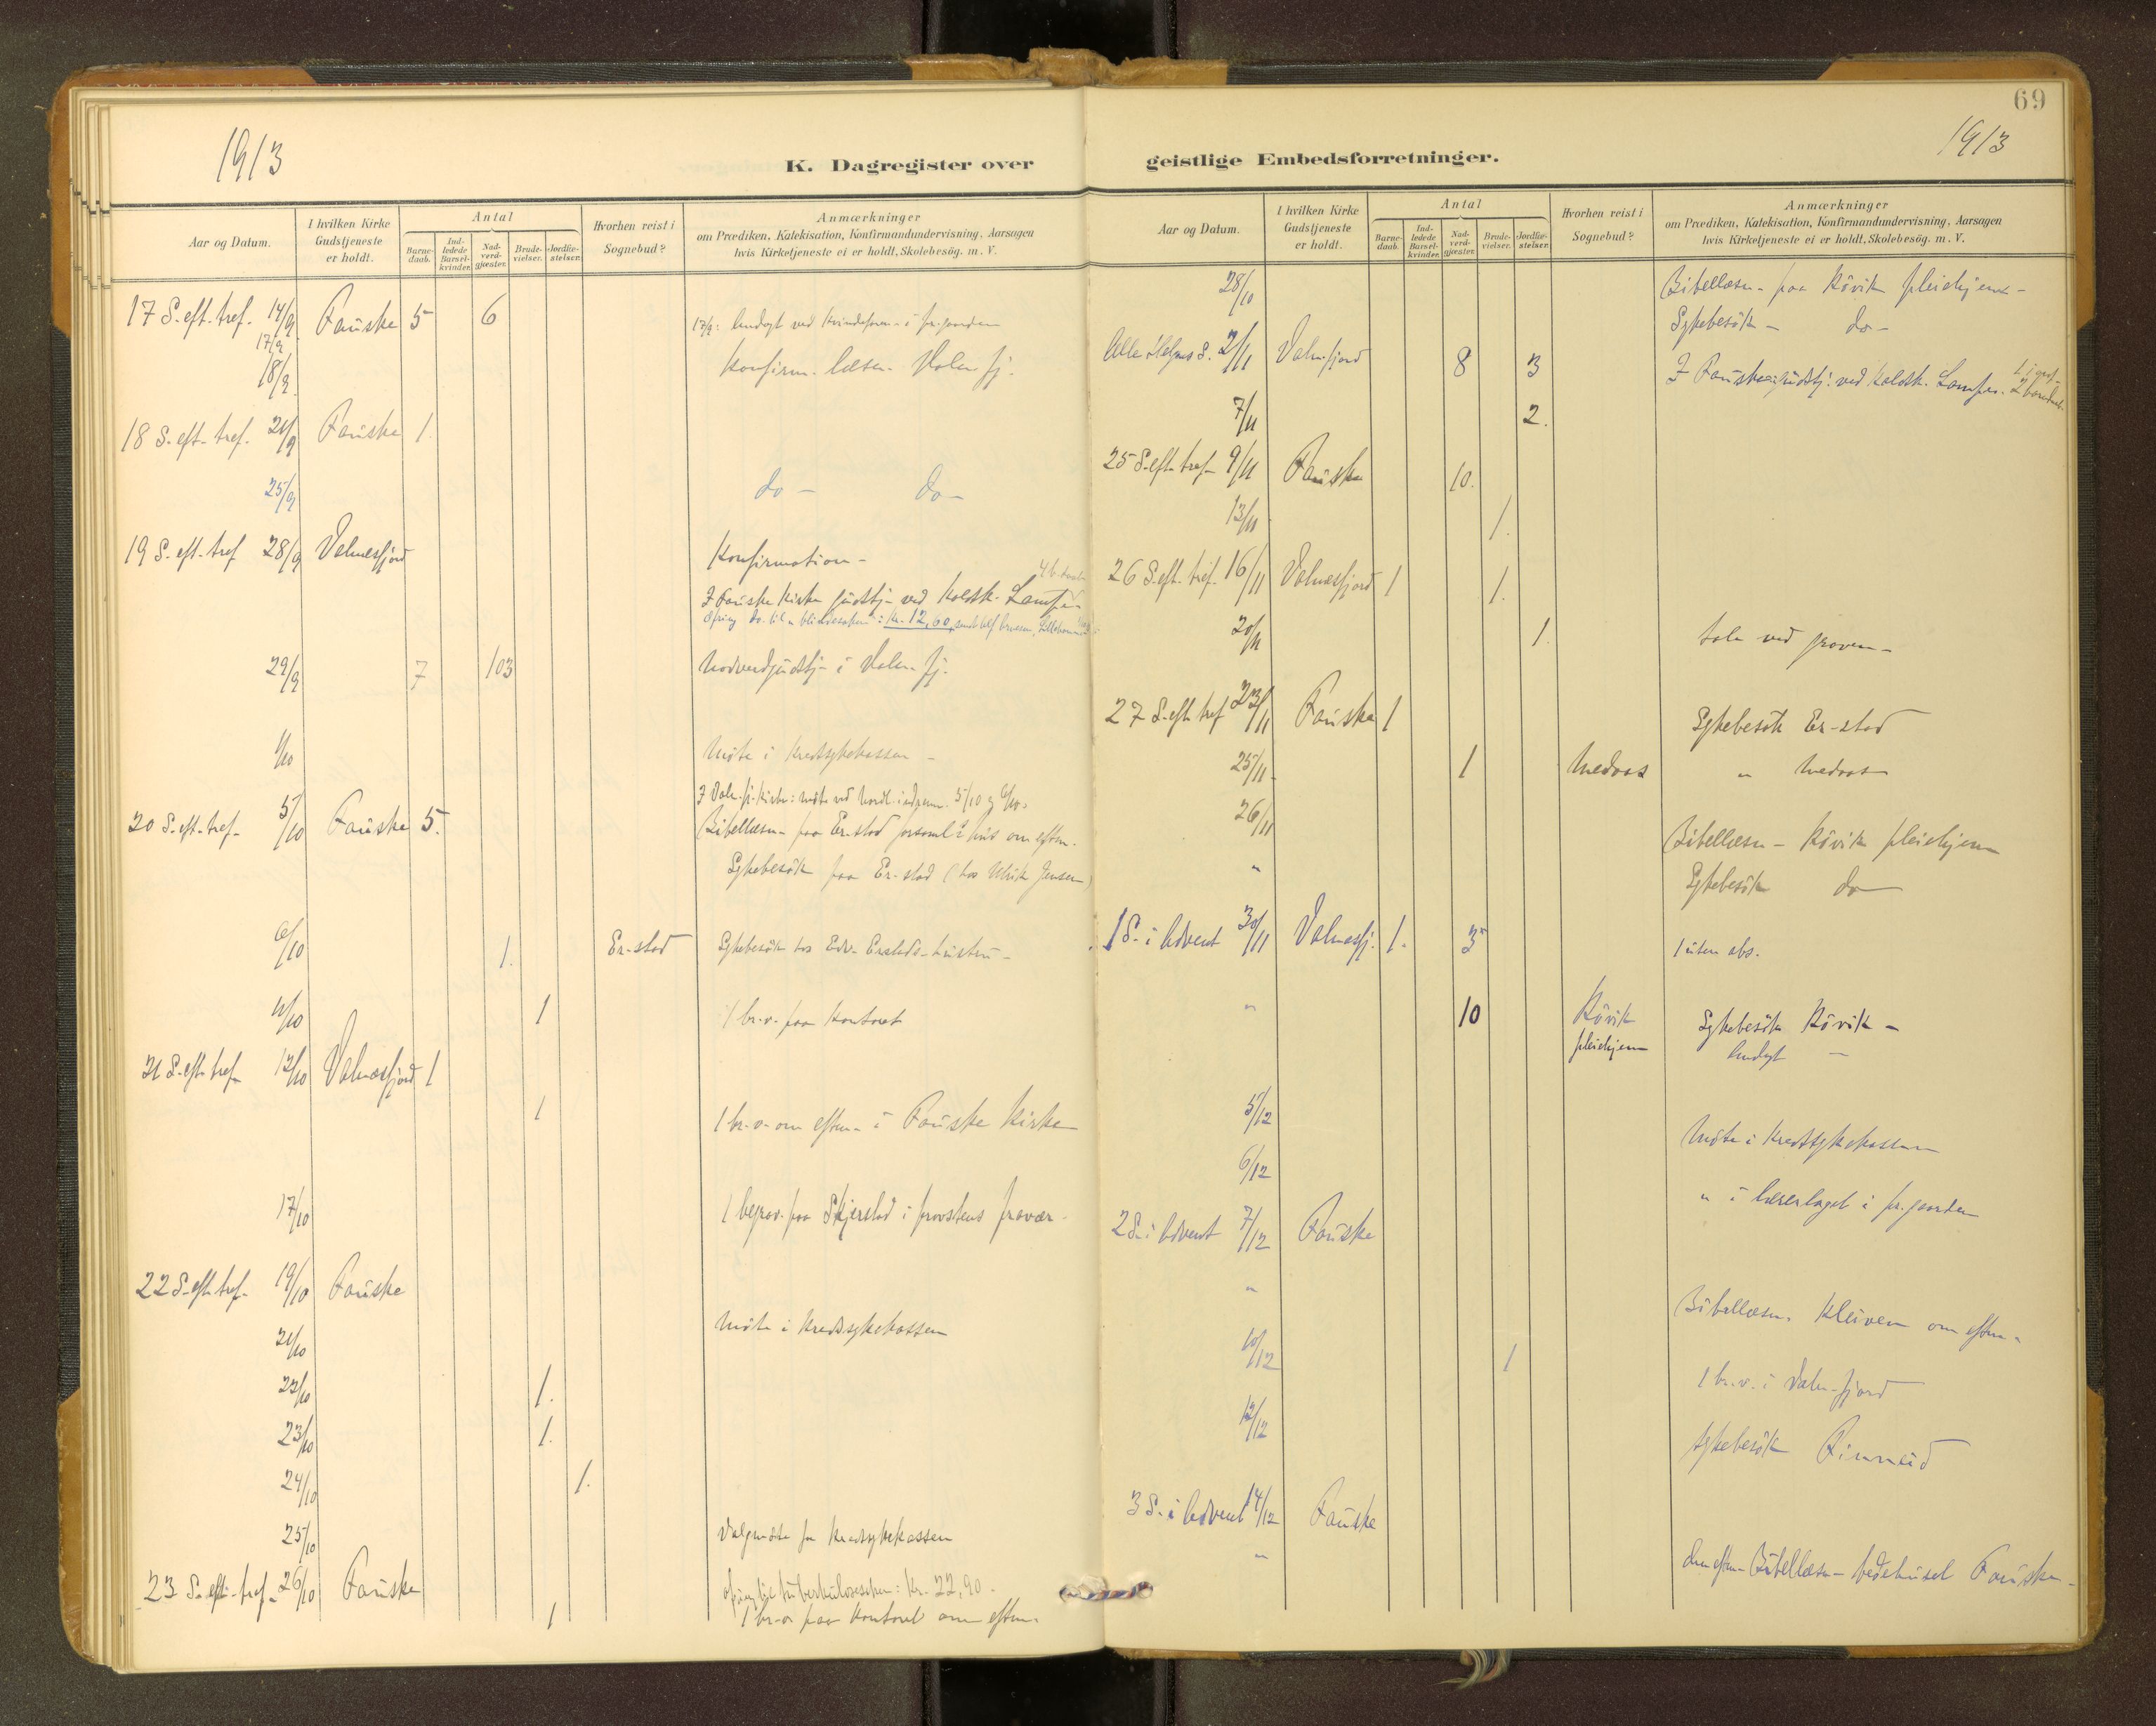 1913
K. Dagregister over
Aar og Datum.
I hvilken Kirke Gudstjeneste er holdt.
Antal
Barnedaab.
Indledede Barselkvinder.
Nadverdgjæster.
Brudevielser.
Jordfæstelser.
Hvorhen reist i Sognebud?
Anmærkninger
om Prædiken, Katekisation, Konfirmandundervisning, Aarsagen
hvis Kirketjeneste ei er holdt, Skolebesög. m. V.
17 S. eft. tref. 14/9 Fauske 5 6
17/9 17/9: Andagt ved Kvindeforen. i pr.gaarden
18/9 Konfirm. læsn. Valn.fj.
18 S. eft. tref. 21/9 Fauske 1
25/9 do - do -
19 S. eft. tref 28/9 Valnesfjord Konfirmation -
I Fauske Kirke gudstj. ved Kaldsk.
kr. 12,60
29/9 7 103 Nadverdgudstj. i Valn. fj.
1/10 Möte i Kredssykekassen -
I Valn.fj. Kirke: möte ved 5/10 og 6/10.
20 S. eft. tref. 5/10 Fauske 5. Bibellæsn. paa Er-stad forsaml.hus om eftm.
Sykebesök paa Er-stad (hos Ulrik Jensen)
6/10 1. Er-stad Sykebesök hos Edv. Erstads hustru -
11/10 1 1 br.v. paa kontoret
21 S. eft. tref. 12/10 Valnæsfjord 1
1 1 br.v. om eftm. i Fauske Kirke
17/10 1 begrav. paa Skjerstad i provstens fravær.
22 S. eft. tref. 19/10 Fauske
21/10 Möte i Kredssykekassen
22/10 1.
23/10 1.
24/10 1.
25/10 Valgmöte for Kredssykekassen
23 S. eft. tref. 26/10 Fauske Ofring til tuberkulosesaken: Kr. 22,90.
1 1 br.v. paa kontoret om eftm.
69
1913
geistlige Embedsforretninger.
Aar og Datum.
I hvilken Kirke Gudstjeneste er holdt.
Antal
Barnedaab.
Indledede Barselkvinder.
Nadverdgjæster.
Brudevielser.
Jordfæstelser.
Hvorhen reist i Sognebud?
Anmærkninger
om Prædiken, Katekisation, Konfirmandundervisning, Aarsagen
hvis Kirketjeneste ei er holdt, Skolebesög. m. V.
28/10 Bibellæsn. paa Rövik pleiehjem -
Sykebesök - do -
Alle Helgens S. 2/11 Valn.fjord 8 3 I Fauske gudstj. ved Kaldsk.
7/11 2.
25 S. eft. tref. 9/11 Fauske 10.
13/11 1.
26 S. eft. tref. 16/11 Valnæsfjord 1 1.
20/11 1. tale ved graven -
27 S. eft. tref 23/11 Fauske 1 Sykebesök Er-stad
25/11 1 Medaas " Medaas
26/11 Bibellæsn - Rövik pleiehjem
" Sykebesök do
1 S. i Advent 30/11 Valnesfj. 1. 3 1 uten abs.
" 10 Rövik pleiehjem Sykebesök Rövik -
Andagt -
5/12 Möte i Kredssykekassen
6/12 " i lærerlaget i pr.gaarden
2 S. i Advent 7/12 Fauske
" Bibellæsn. Kleiven om eftm.
10/12 1 1 br.v. i Valn.fjord
12/12 Sykebesök Finneid
3 S. i Advent 14/12 Fauske
" Om eftm. Bibellæsn. bedehuset Fauske -